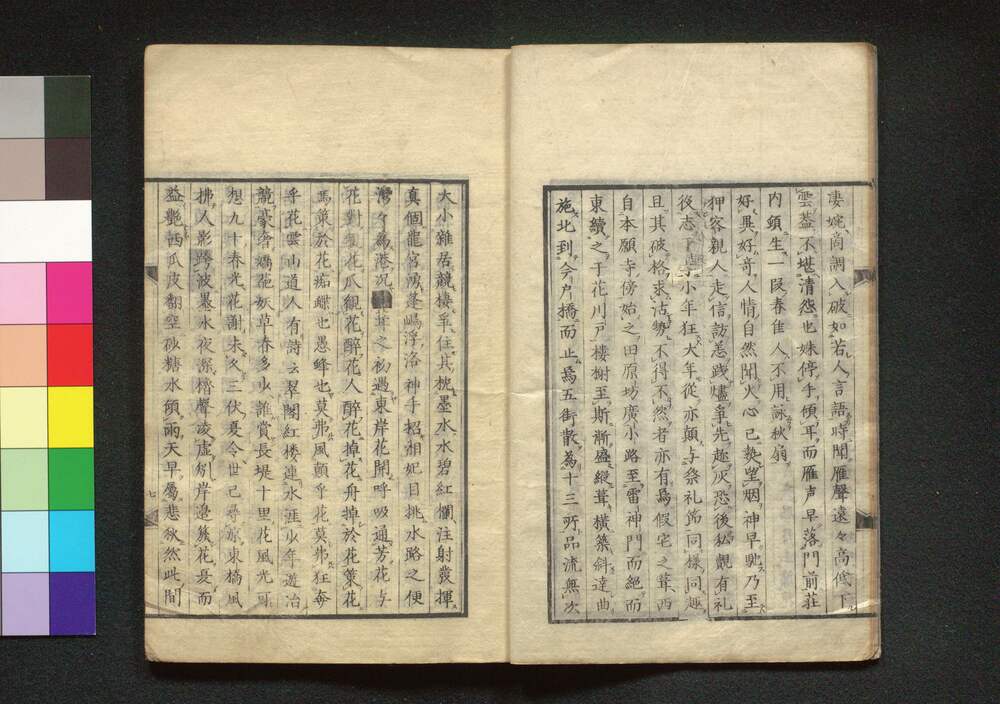 凄婉商調入破如若人言語時聞雁聲遠々高低下
雲盖不堪清怨也妹停手傾耳而雁声早落門前荘
内頓生一段春隹人不用詠秋扇
好異好竒人情自然聞火心已熱望烟神早馳乃至
狎客親人走信訪恙践爐爭先趍灰恐後私覿有礼
後志 小年狂大年從亦顛与祭礼節同様同趣
且其破格求沽勢不得不然者亦有為假宅之葺西
自本願寺傍始之田原埸廣小路至雷神門而絶而
東續之于花川戸楼榭至斯漸盛縦葺横築斜達曲
施北到今戸橋而止為五街散為十三所品流無次
大小雜居競棲爭住其枕墨水水碧紅欄注射發揮
真個龍宮湧蓬嶋浮洛神手招湘妃目挑水路之便
灣々為港况 昔之初遇東岸花開呼吸通芳花与
花對 花爪観花醉花人醉花掉花舟掉於花策花
馬策於花痴蝶也愚蜂也莫弗風顛乎花莫弗狂奔
乎花雲山道人有詩云翠閣紅楼連水涯少年遊冶
競豪奢嬌花妖草春多少誰賞長堤十里花風光可
想九十春光花謝未久三伏夏令世已尋凉東橋風
拂人影跨波墨水夜深櫓聲凌虚 岸邉幾花忌而
益艶西瓜皮翻空砂糖水傾雨天早属悲秋然此間